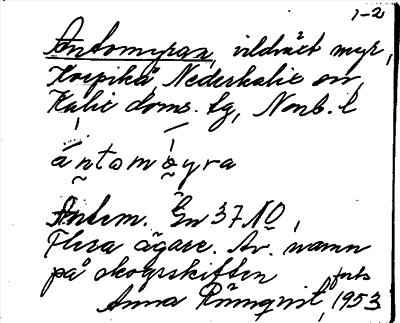 1-2
Antomyran, vildväxt myr,
Korpikå, Nederkalix sn,
Kalix doms. tg, Norrb. l
ántomə̀yra
Antem. Gn 37 NO,
Flera ägare. Äv. namn
på skogsskiften
forts
Anna Rönnqvist, 1953